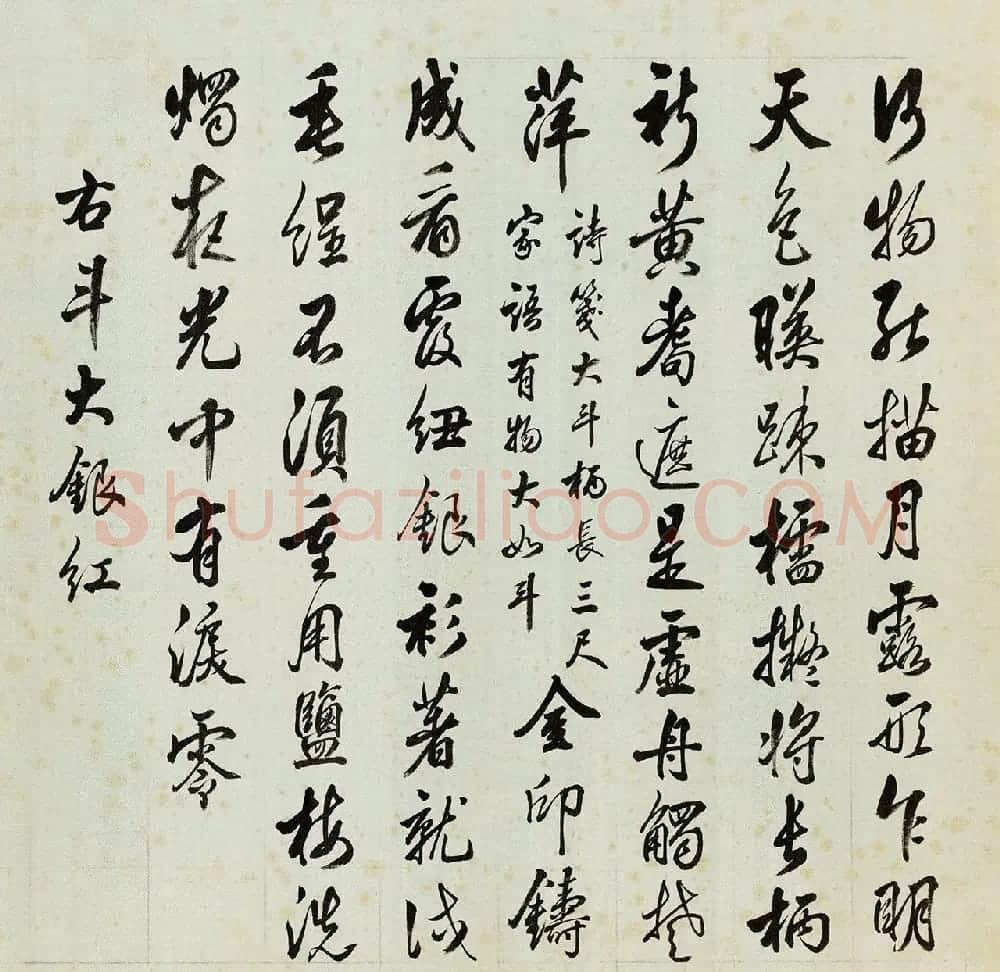 何物能描月露形乍明
天色暎疎櫺擬將長柄
祈黃耇遮是虛舟觸楚
萍
詩箋大斗柄長三尺
家語有物大如斗
金印鑄
成看覆紐銀衫著就試
垂綎不須重用鹽梅洗
燭夜光中有淚零
右斗大銀紅
Shufaziliao.COM